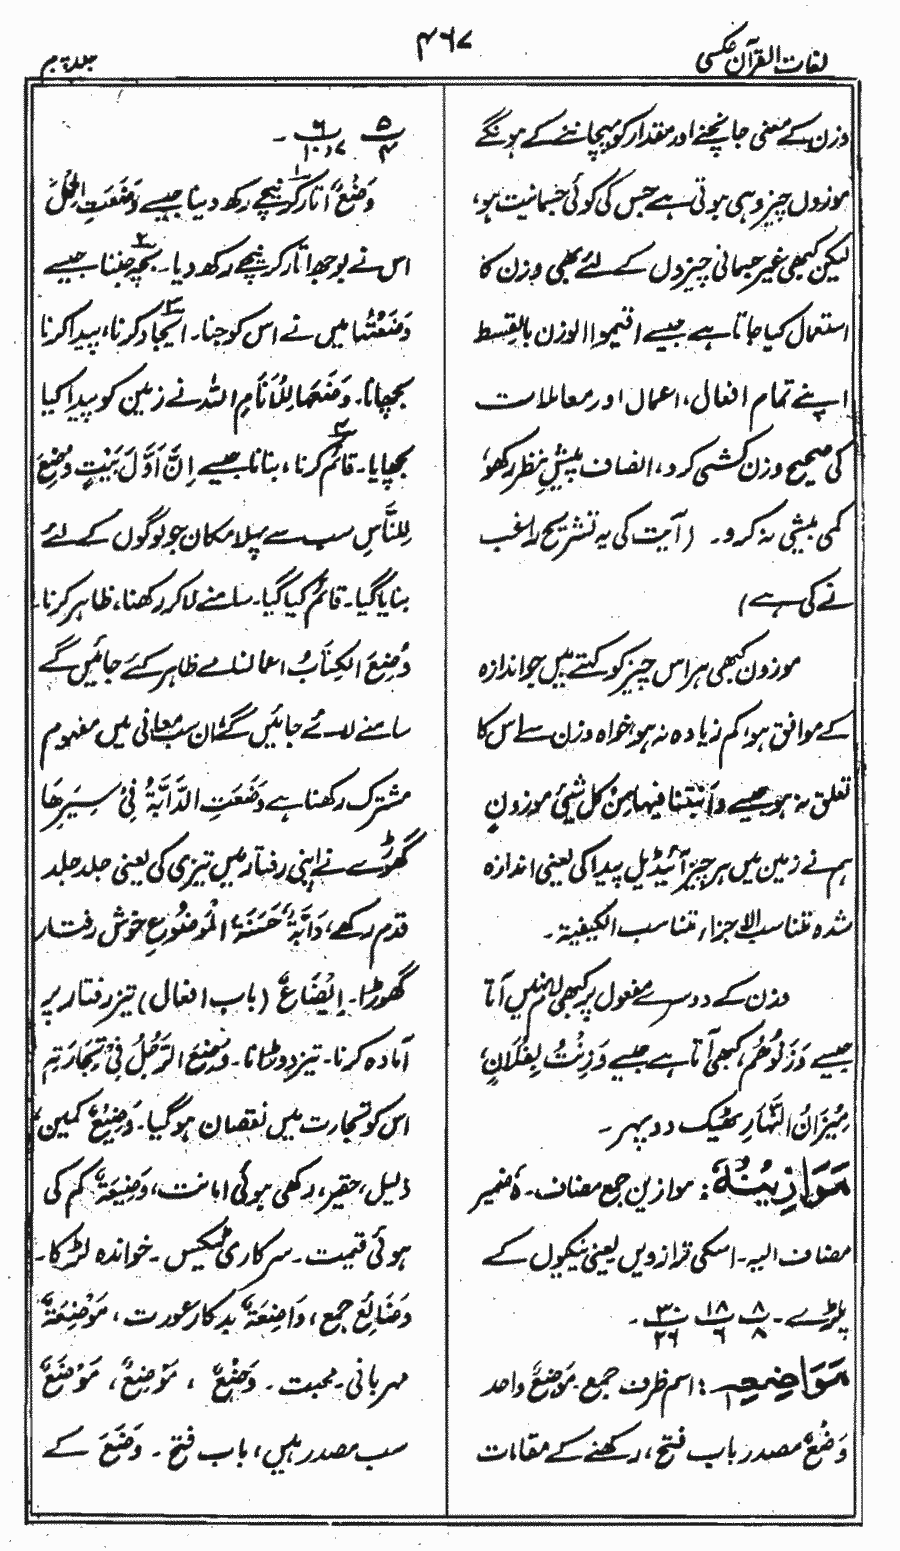 لغات القرآن عکسی
۴۶۷
جلد پنجم
وزن کے معنی جانچنے اور مقدار کو پہچاننے کے ہونگے
موزوں چیز وہی ہوتی ہے جس کی کوئی جسمانیت ہو،
لیکن کبھی غیر جسمانی چیزوں کے لئے بھی وزن کا
استعمال کیا جاتا ہے جیسے اقیموا الوزن بالقسط
اپنے تمام افعال، اعمال اور معاملات
کی صحیح وزن کشی کرو، انصاف پیشِ نظر رکھو،
کمی بیشی نہ کرو۔ (آیت کی یہ تشریح راغب
نے کی ہے)
موزون کبھی ہر اس چیز کو کہتے ہیں جو اندازہ
کے موافق ہو، کم زیادہ نہ ہو، خواہ وزن سے اس کا
تعلق نہ ہو جیسے وَاَنْبَتْنَا فِیہا مِنْ کل شیئ موزونٍ
ہم نے زمین میں ہر چیز آئیڈیل پیدا کی یعنی اندازہ
شدہ متناسب الاجزاء، متناسب الکیفیۃ۔
وزن کے دوسرے مفعول پر کبھی لام نہیں آتا
جیسے وَزَنُوْھُمْ، کبھی آتا ہے جیسے وَزِنْتُ لِفُلَانٍ،
مِیْزَانُ النَّہَارِ ٹھیک دوپہر۔
مَوَازِیْنُہٗ: موازین جمع مضاف۔ ہٗ ضمیر
مضاف الیہ۔ اسکی ترازویں یعنی نیکیوں کے
پلڑے۔ ۸/۸ پ ۱۸/۶ پ ۳۰/۲۶۔
مَوَاضِعِہٖ: اسم ظرف جمع۔ مَوْضِعٌ واحد
وَضْعٌ مصدر باب فتح، رکھنے کے مقامات
۵/۴ پ ۶/۷، ۱۰ پ۔
وَضْعٌ اتار کر نیچے رکھ دینا جیسے وَضَعَتِ الْحَمْلَ
اس نے بوجھ اتار کر نیچے رکھ دیا۔ ۲ بچہ جننا جیسے
وَضَعْتُہا میں نے اس کو جنا۔ ۳ ایجاد کرنا، پیدا کرنا
بچھانا۔ وَضَعَہَا لِلْاَنَامِ اللہ نے زمین کو پیدا کیا
بچھایا۔ ۴ قائم کرنا، بنانا جیسے اِنَّ اَوَّلَ بَیْتٍ وُّضِعَ
لِلنَّاسِ سب سے پہلا مکان جو لوگوں کے لئے
بنایا گیا۔ قائم کیا گیا۔ سامنے لا کر رکھنا، ظاہر کرنا۔
وُضِعَ الْکِتَابُ اعمالنامے ظاہر کئے جائیں گے
سامنے لائے جائیں گے، ان سب معانی میں مفہوم
مشترک رکھنا ہے وَضَعَتِ الدَّابَّۃُ فِیْ سَیْرِہَا
گھوڑے نے اپنی رفتار میں تیزی کی یعنی جلد جلد
قدم رکھے، دَابَّۃٌ حَسَنَۃُ الْمَوْضُوْعِ خوش رفتار
گھوڑا۔ اِیْضَاعٌ (باب افعال) تیز رفتار پر
آمادہ کرنا۔ تیز دوڑانا۔ وُضِعَ الرَّجُلُ فِیْ تِجَارَتِہٖ
اس کو تجارت میں نقصان ہو گیا۔ وَضِیْعٌ کمین،
ذلیل، حقیر، رکھی ہوئی امانت، وَضِیْعَۃٌ کم کی
ہوئی قیمت۔ سرکاری ٹیکس۔ خواندہ لڑکا۔
وَضَائِعُ جمع، وَاضِعَۃٌ بدکار عورت، مَوْضِعَۃٌ
مہربانی۔ محبت۔ وَضْعٌ، مَوْضِعٌ، مَوْضَعٌ
سب مصدر ہیں، باب فتح۔ وَضَعَ کے